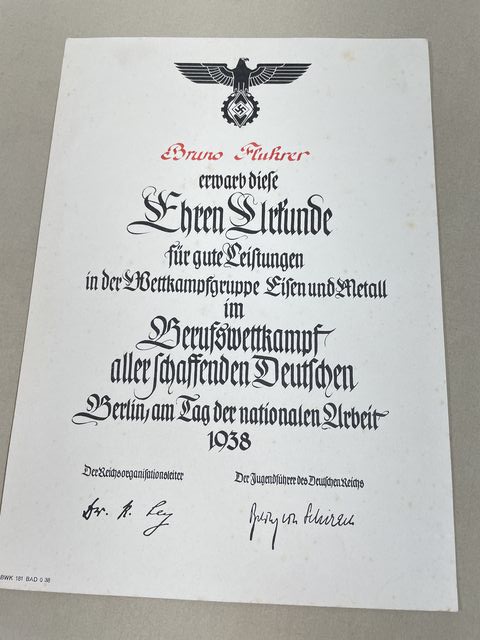 Bruno Fluhrer
erwarb diese
Ehren Urkunde
für gute Leistungen
in der Wettkampfgruppe Eisen und Metall
im
Berufswettkampf
aller schaffenden Deutschen
Berlin, am Tag der nationalen Arbeit
1938
Der Reichsorganisationsleiter
Der Jugendführer des Deutschen Reichs
Dr. R. Ley
Baldur von Schirach
BWK 181 BAD 0 38